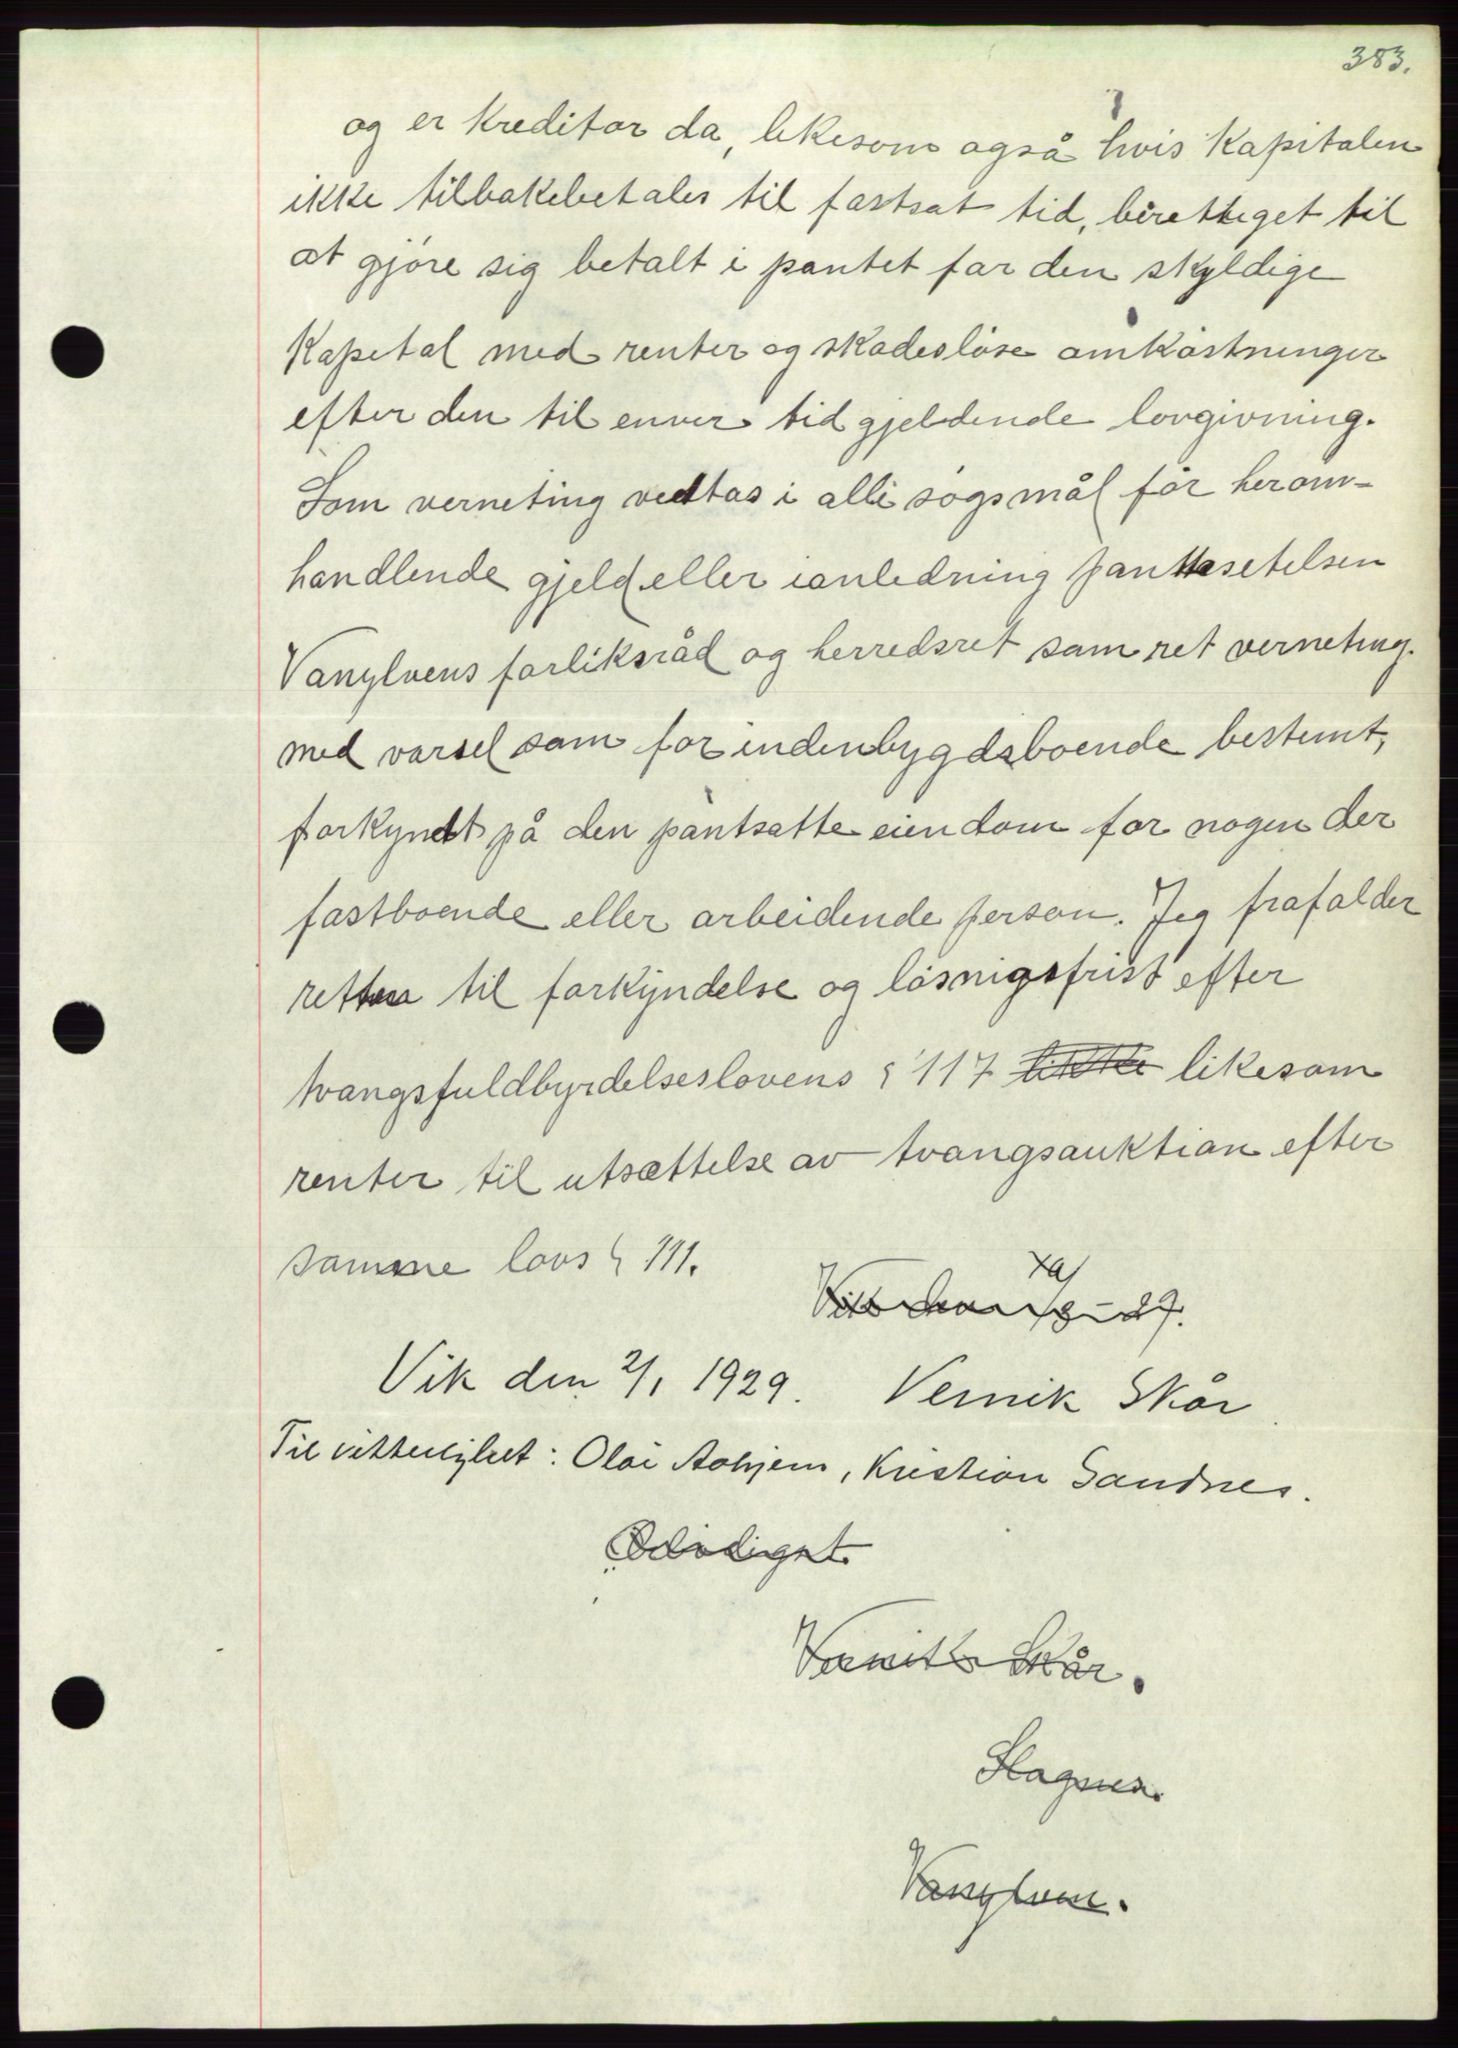 383.
og er Kreditor da, likesom også hvis Kapitalen
ikke tilbakebetales til fastsat tid, berettiget til
at gjøre sig betalt i pantet for den skyldige
Kapital med renter og skadesløse omkostninger
efter den til enver tid gjeldende lovgivning.
Som verneting vedtas i alle søgsmål for herom-
handlende gjeld eller ianledning panttesetelsen
Vanylvens forliksråd og herredsret som ret verneting.
med varsel som for indenbygdsboende bestemt,
forkyndt på den pantsatte eiendom for nogen der
fastboende eller arbeidende person. Jeg frafalder
retten til forkyndelse og løsnigsfrist efter
tvangsfuldbyrdelseslovens § 117 likesom
renter til utsættelse av tvangsauktion efter
samme lovs § 111.
Vik den 2/1 1929. Vernik Skår
Til vitterlighet: Olai Aahjem, Kristian Sandnes.
Vernik Skår.
Slagnes.
Vanylven.